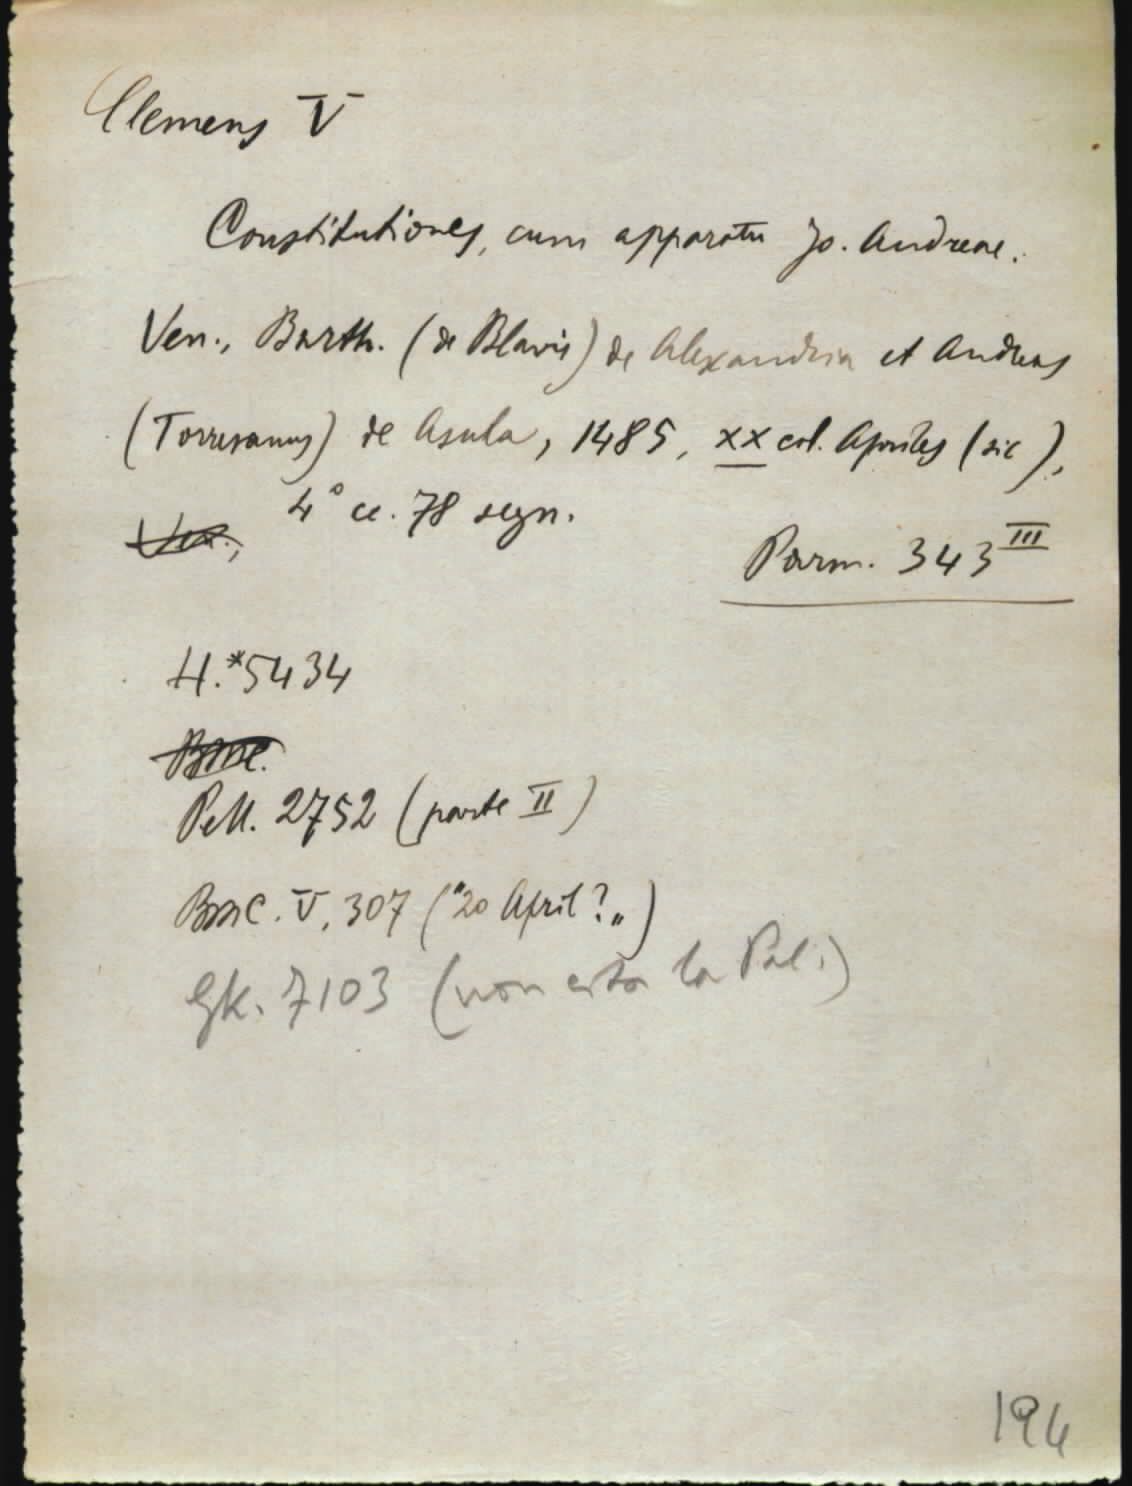 Clemens V
Constitutiones, cum apparatu Jo. Andreae.
Ven., Barth. (de Blavis) de Alexandria et Andreas
(Torresanus) de Asula, 1485, XX cal. Apriles (sic),
4° cc. 78 segn.
Ven.,
Parm. 343 III
H.*5434
BMC.
Pell. 2752 (parte II)
BMC. V, 307 ("20 April?„)
Gk. 7103 (non cita la Pal.)
194